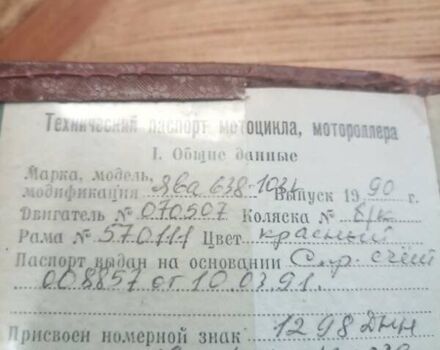 Технический паспорт мотоцикла, мотороллера
I. Общие данные
Марка, модель,
модификация Ява 638-1034 Выпуск 1990 г.
Двигатель № 070507 Коляска № б/к
Рама № 570111 Цвет красный
Паспорт выдан на основании Спр. счет
008857 от 10.03.91.
Присвоен номерной знак 1298 ДНН